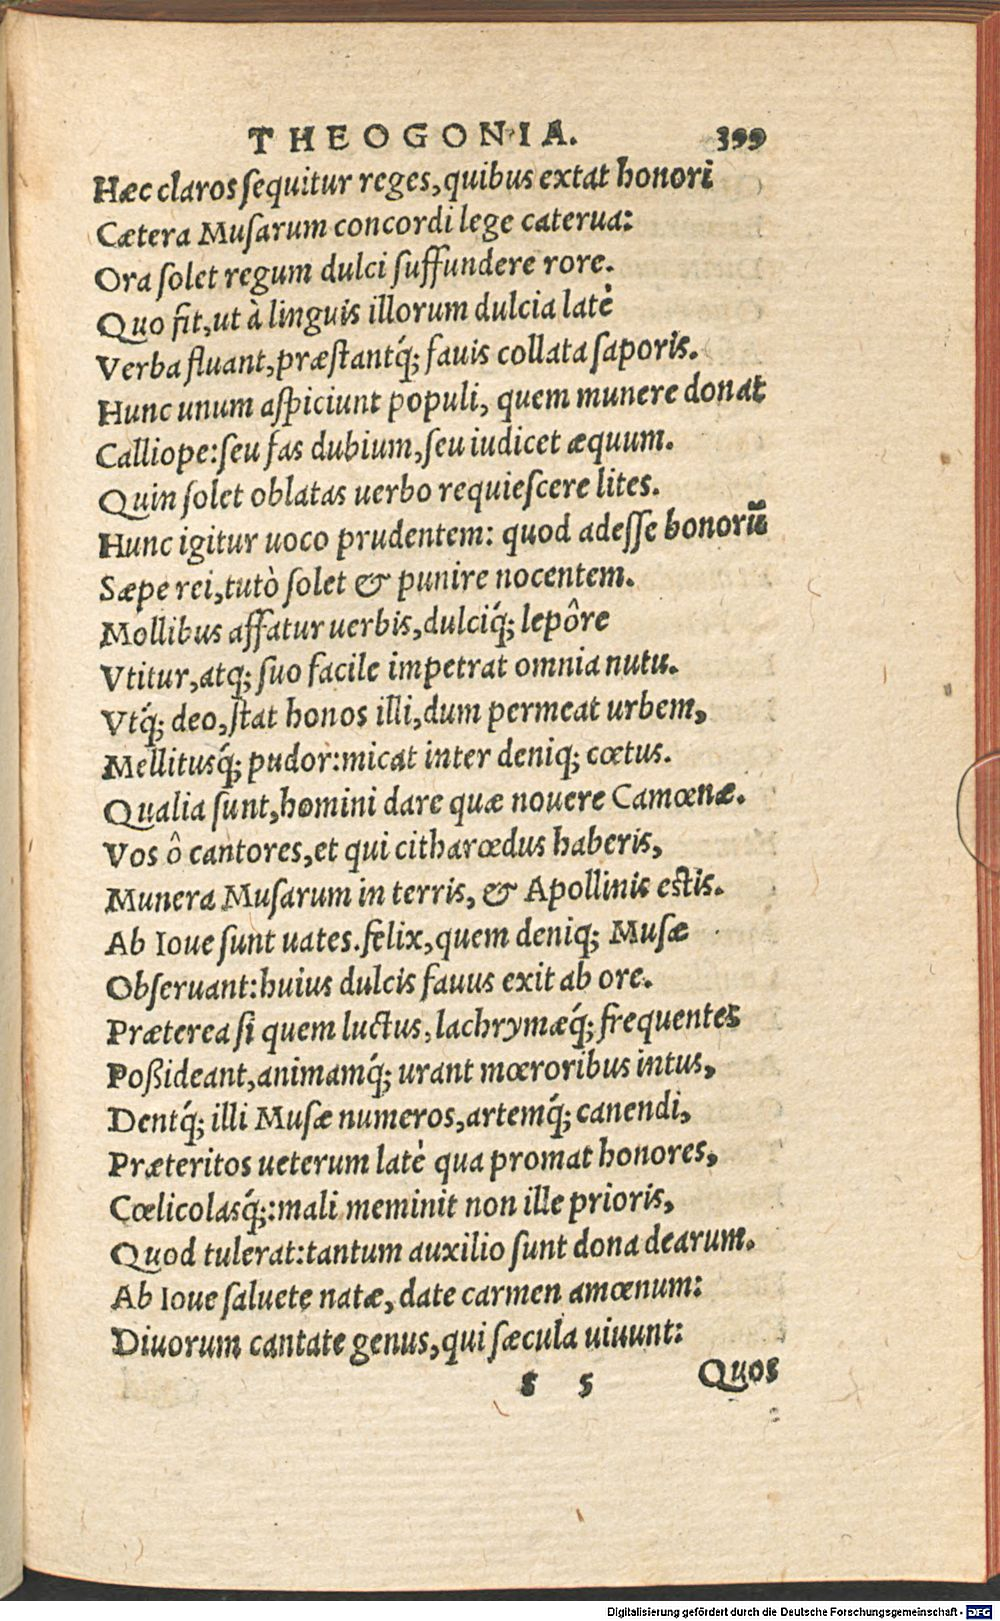 THEOGONIA. 399
Hæc claros ſequitur reges, quibus extat honori
Cætera Muſarum concordi lege caterua:
Ora ſolet regum dulci ſuffundere rore.
Quo fit, ut à linguis illorum dulcia latè
Verba fluant, præſtantq́; fauis collata ſaporis.
Hunc unum aſpiciunt populi, quem munere donat
Calliope: ſeu fas dubium, ſeu iudicet æquum.
Quin ſolet oblatas uerbo requieſcere lites.
Hunc igitur uoco prudentem: quod adeſſe bonorũ
Sæpe rei, tutò ſolet & punire nocentem.
Mollibus affatur uerbis, dulciq́; lepôre
Vtitur, atq; ſuo facile impetrat omnia nutu.
Vtq́; deo, ſtat honos illi, dum permeat urbem,
Mellitusq́; pudor: micat inter deniq; cœtus.
Qualia ſunt, homini dare quæ nouere Camœnæ.
Vos ô cantores, et qui citharœdus haberis,
Munera Muſarum in terris, & Apollinis eſtis.
Ab Ioue ſunt uates. felix, quem deniq; Muſæ
Obſeruant: huius dulcis fauus exit ab ore.
Præterea ſi quem luctus, lachrymæq́; frequentes
Poßideant, animamq́; urant mœroribus intus,
Dentq́; illi Muſæ numeros, artemq́; canendi,
Præteritos ueterum latè qua promat honores,
Cœlicolasq́;: mali meminit non ille prioris,
Quod tulerat: tantum auxilio ſunt dona dearum.
Ab Ioue ſaluete natæ, date carmen amœnum:
Diuorum cantate genus, qui ſæcula uiuunt:
s 5 Quos
Digitalisierung gefördert durch die Deutsche Forschungsgemeinschaft - DFG